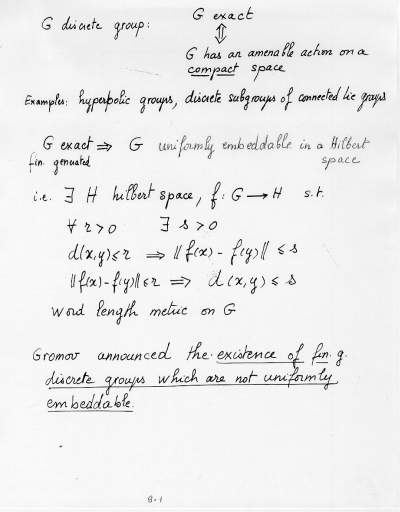 G discrete group: G exact
⇕
G has an amenable action on a
compact space
Examples: hyperbolic groups, discrete subgroups of connected lie groups
G exact ⇒ G uniformly embeddable in a Hilbert
fin. generated space
i.e. ∃ H hilbert space, f: G → H s.t.
∀ r > 0 ∃ s > 0
d(x,y) ≤ r ⇒ ‖f(x) - f(y)‖ ≤ s
‖f(x) - f(y)‖ ≤ r ⇒ d(x,y) ≤ s
word length metric on G
Gromov announced the existence of fin. g.
discrete groups which are not uniformly
embeddable.
8-1